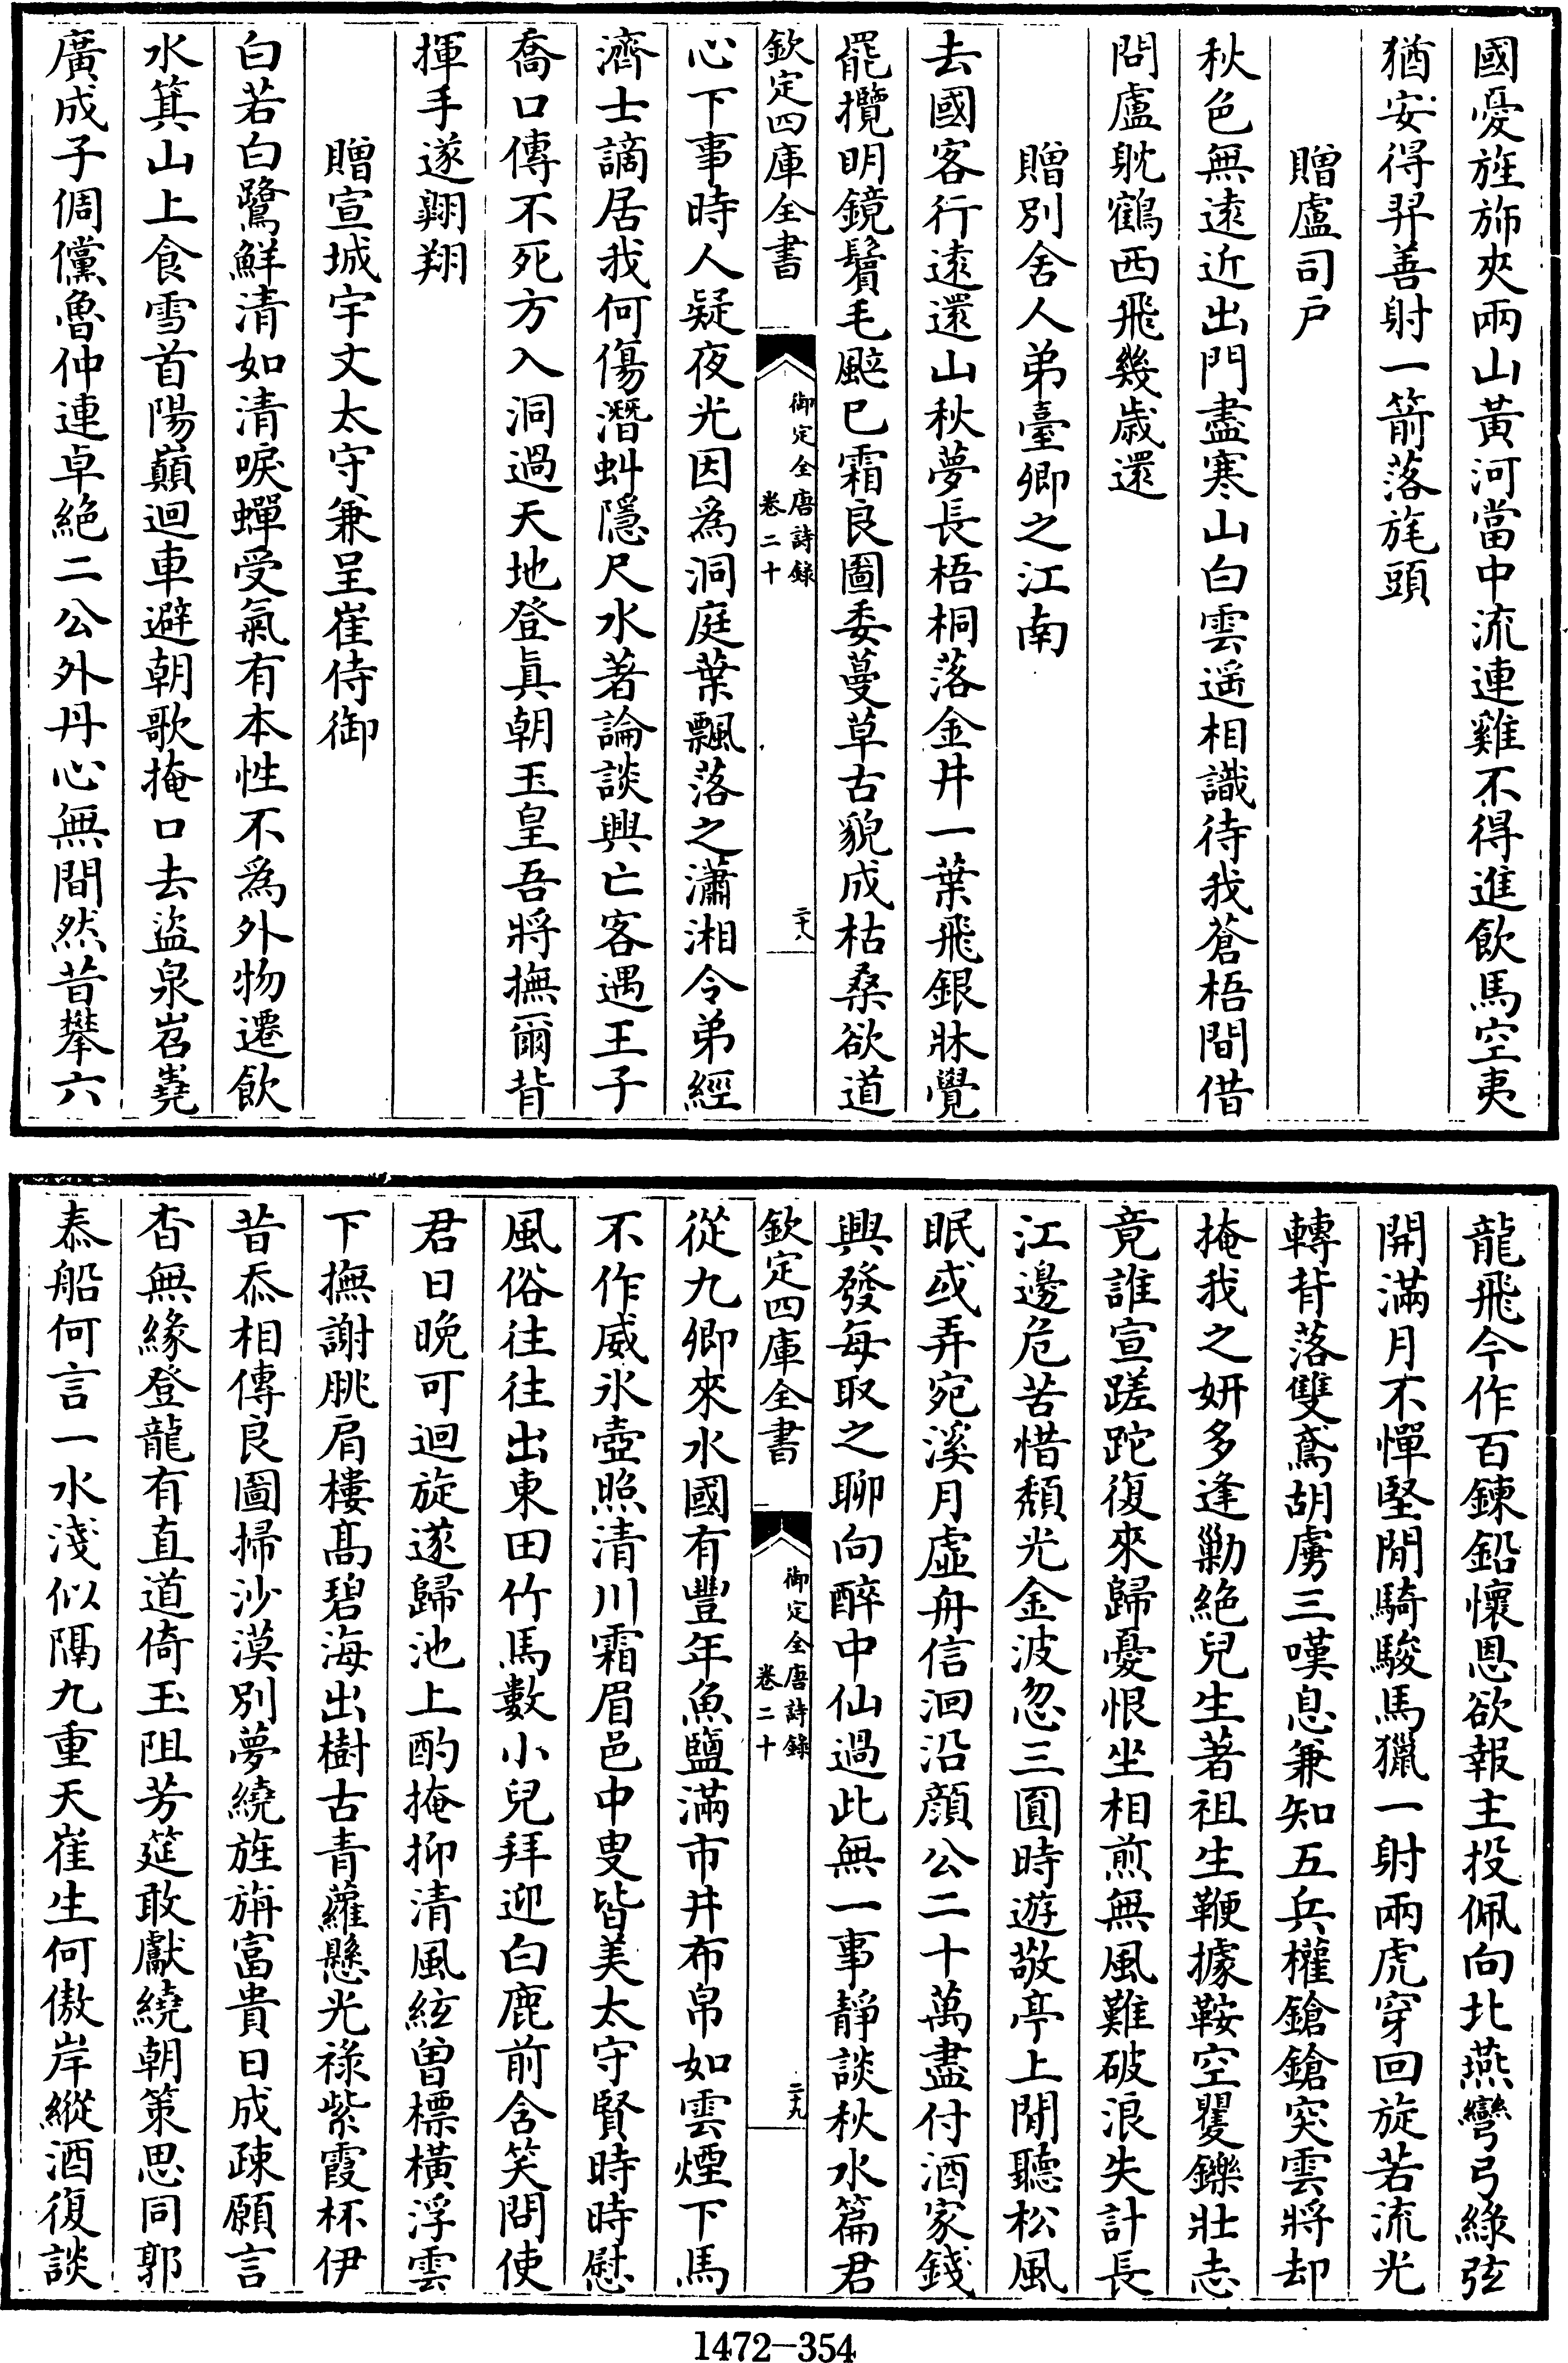 國憂旌斾夾兩山黃河當中流連雞不得進飲馬空夷
猶安得羿善射一箭落旄頭
贈盧司戶
秋色無遠近出門盡寒山白雲遥相識待我蒼梧間借
問盧躭鶴西飛幾歲還
贈別舍人弟臺卿之江南
去國客行遠還山秋夢長梧桐落金井一葉飛銀牀覺
罷攬明鏡鬢毛颯已霜良圖委蔓草古貌成枯桑欲道
欽定四庫全書
御定全唐詩錄
卷二十
二十八
心下事時人疑夜光因為洞庭葉飄落之瀟湘令弟經
濟士謫居我何傷潛虯隱尺水著論談興亡客遇王子
喬口傳不死方入洞過天地登眞朝玉皇吾將撫爾背
揮手遂翺翔
贈宣城宇文太守兼呈崔侍御
白若白鷺鮮清如清唳蟬受氣有本性不為外物遷飲
水箕山上食雪首陽巔迴車避朝歌掩口去盜泉岧嶤
廣成子倜儻魯仲連卓絶二公外丹心無間然昔攀六
龍飛今作百鍊鉛懷恩欲報主投佩向北燕彎弓綠弦
開滿月不憚堅閒騎駿馬獵一射兩虎穿回旋若流光
轉背落雙鳶胡虜三嘆息兼知五兵權鎗鎗突雲將却
掩我之妍多逢勦絶兒生著祖生鞭據鞍空矍鑠壯志
竟誰宣蹉跎復來歸憂恨坐相煎無風難破浪失計長
江邊危苦惜頹光金波忽三圓時遊敬亭上閒聽松風
眠或弄宛溪月虛舟信洄沿顔公二十萬盡付酒家錢
興發每取之聊向醉中仙過此無一事靜談秋水篇君
欽定四庫全書
御定全唐詩錄
卷二十
二十九
從九卿來水國有豐年魚鹽滿市井布帛如雲煙下馬
不作威氷壺照清川霜眉邑中叟皆美太守賢時時慰
風俗往往出東田竹馬數小兒拜迎白鹿前含笑問使
君日晚可迴旋遂歸池上酌掩抑清風絃曾標橫浮雲
下撫謝朓肩樓髙碧海出樹古青蘿懸光祿紫霞杯伊
昔忝相傳良圖掃沙漠別夢繞旌旃富貴日成疎願言
杳無緣登龍有直道倚玉阻芳筵敢獻繞朝策思同郭
泰船何言一水淺似隔九重天崔生何傲岸縱酒復談
1472-354